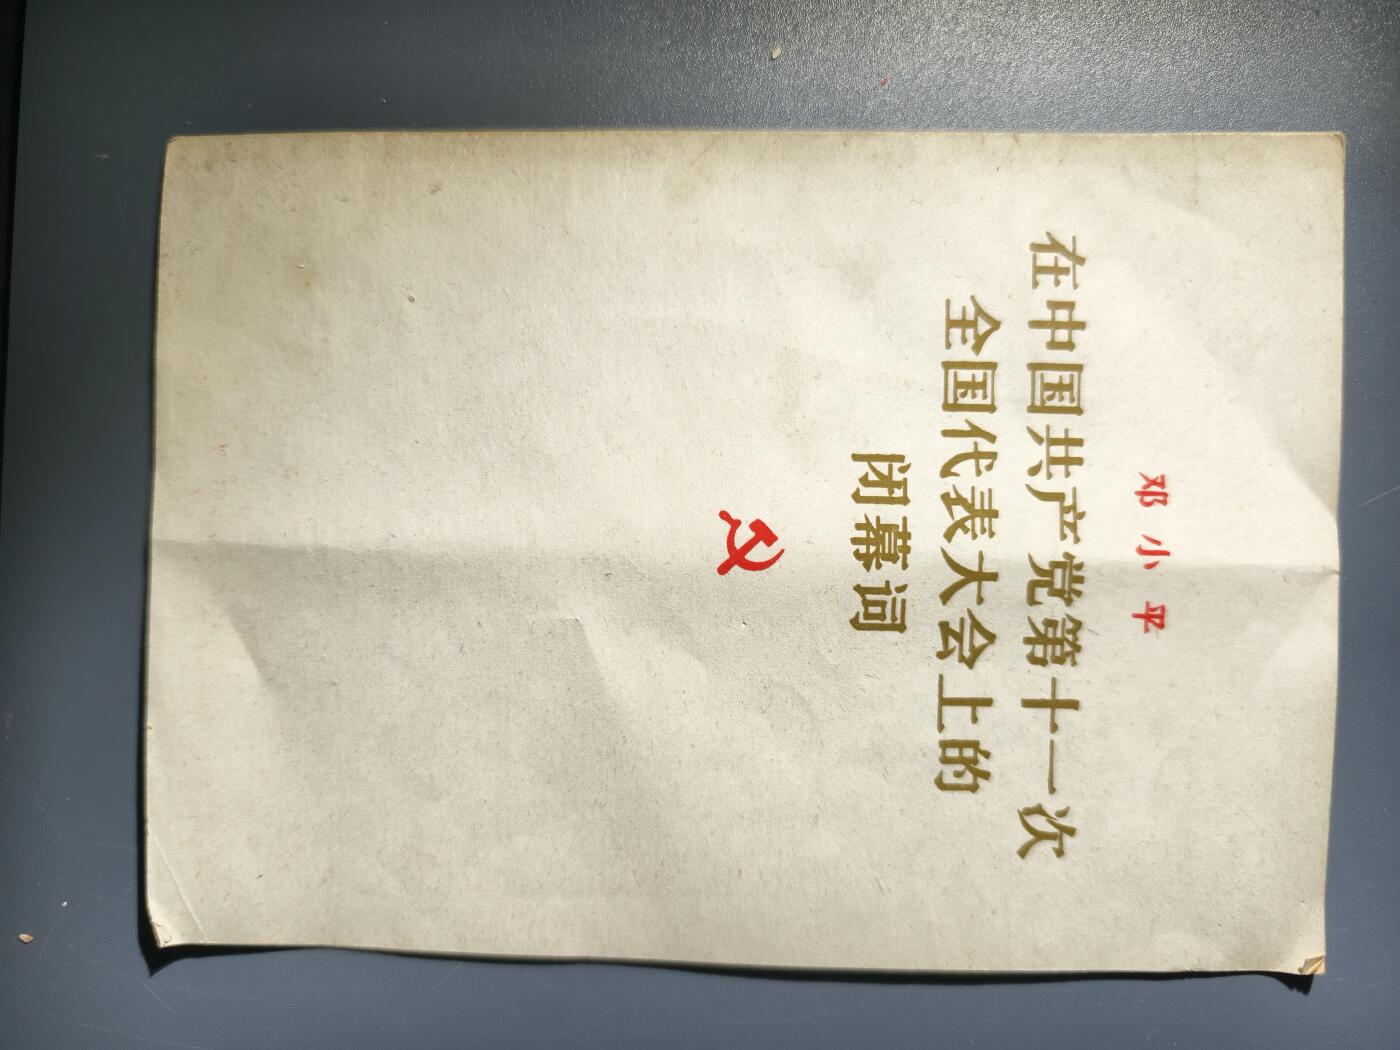 邓小平
在中国共产党第十一次
全国代表大会上的
闭幕词